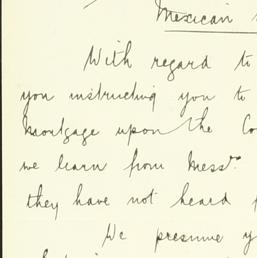 Mexican
With regard to
you instructing you to
Mortgage upon the Co
we learn from Messrs.
they have not heard f
We presume y